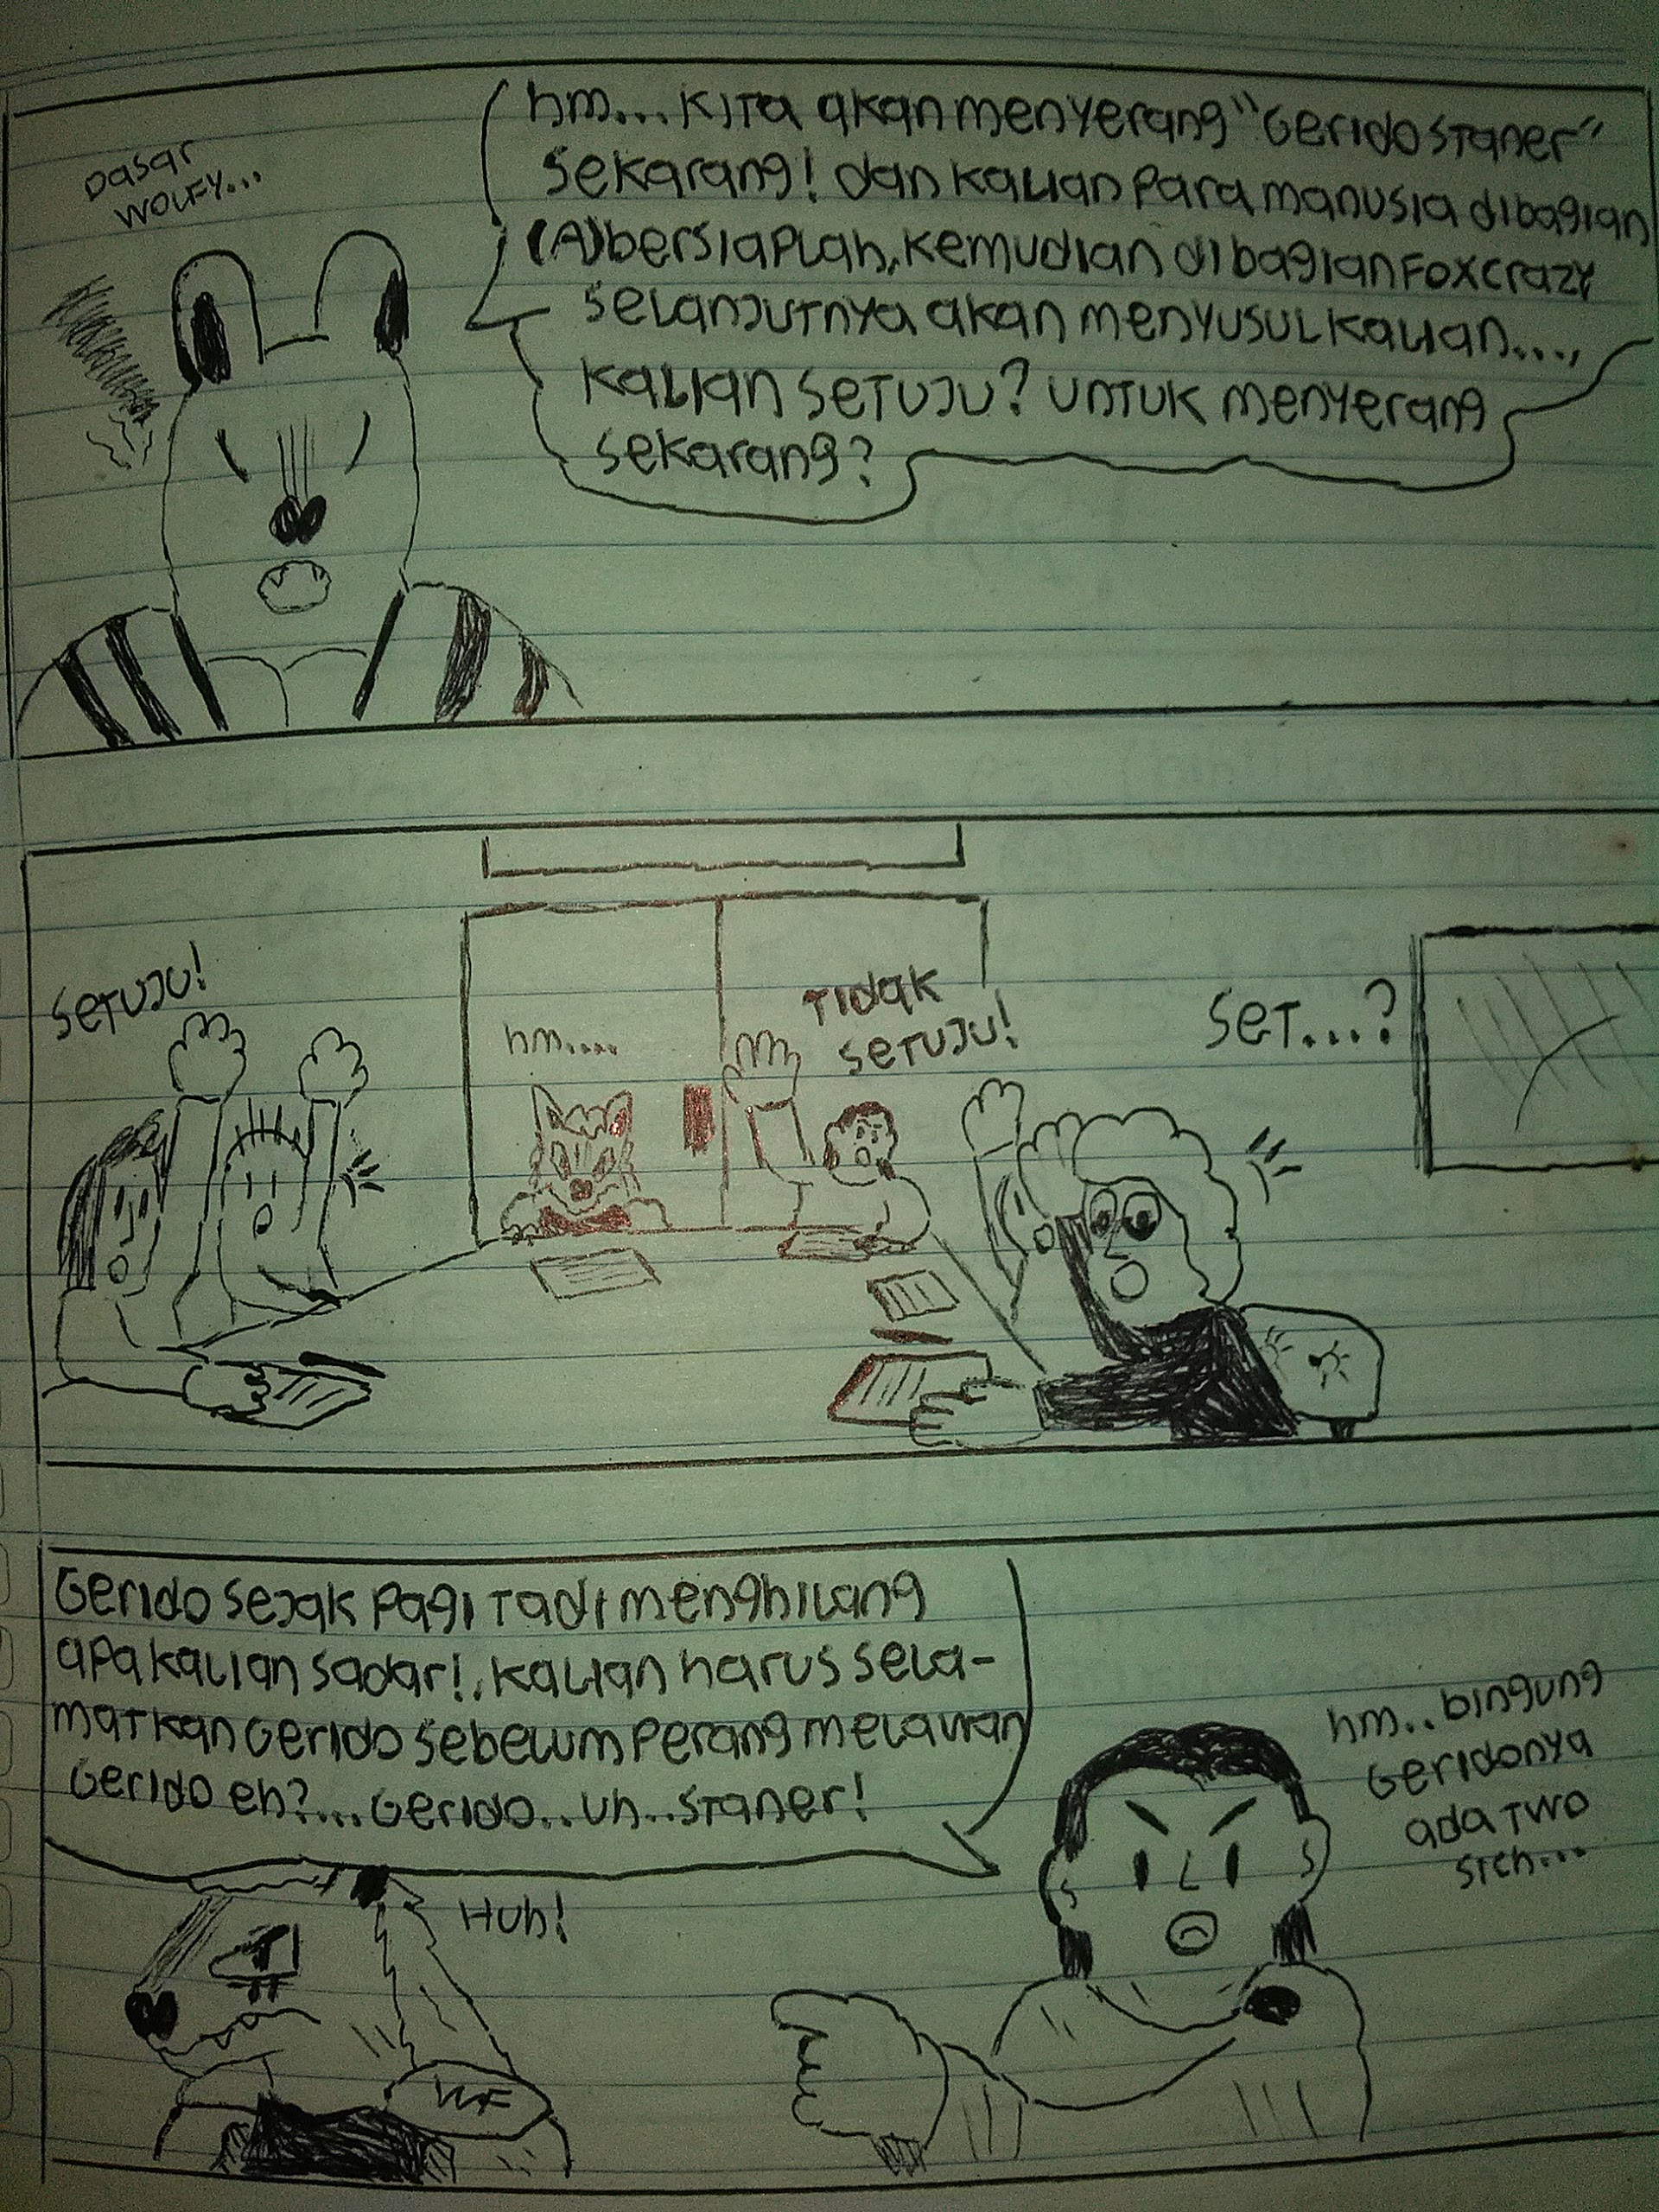 Dasar
Wolfy...
hm... Kita akan menyerang "Gerido staner"
sekarang! dan kalian para manusia dibagian
(A) bersiaplah, kemudian dibagian Foxcrazy
selanjutnya akan menyusul kalian....,
kalian setuju? untuk menyerang
sekarang?
setuju!
hm....
Tidak
setuju!
set...?
Gerido sejak pagi tadi menghilang
apa kalian sadar!, kalian harus sela-
matkan Gerido sebelum perang melawan
Gerido eh?... Gerido.. uh.. staner!
Huh!
hm.. bingung
Geridonya
ada two
sieh...
WF